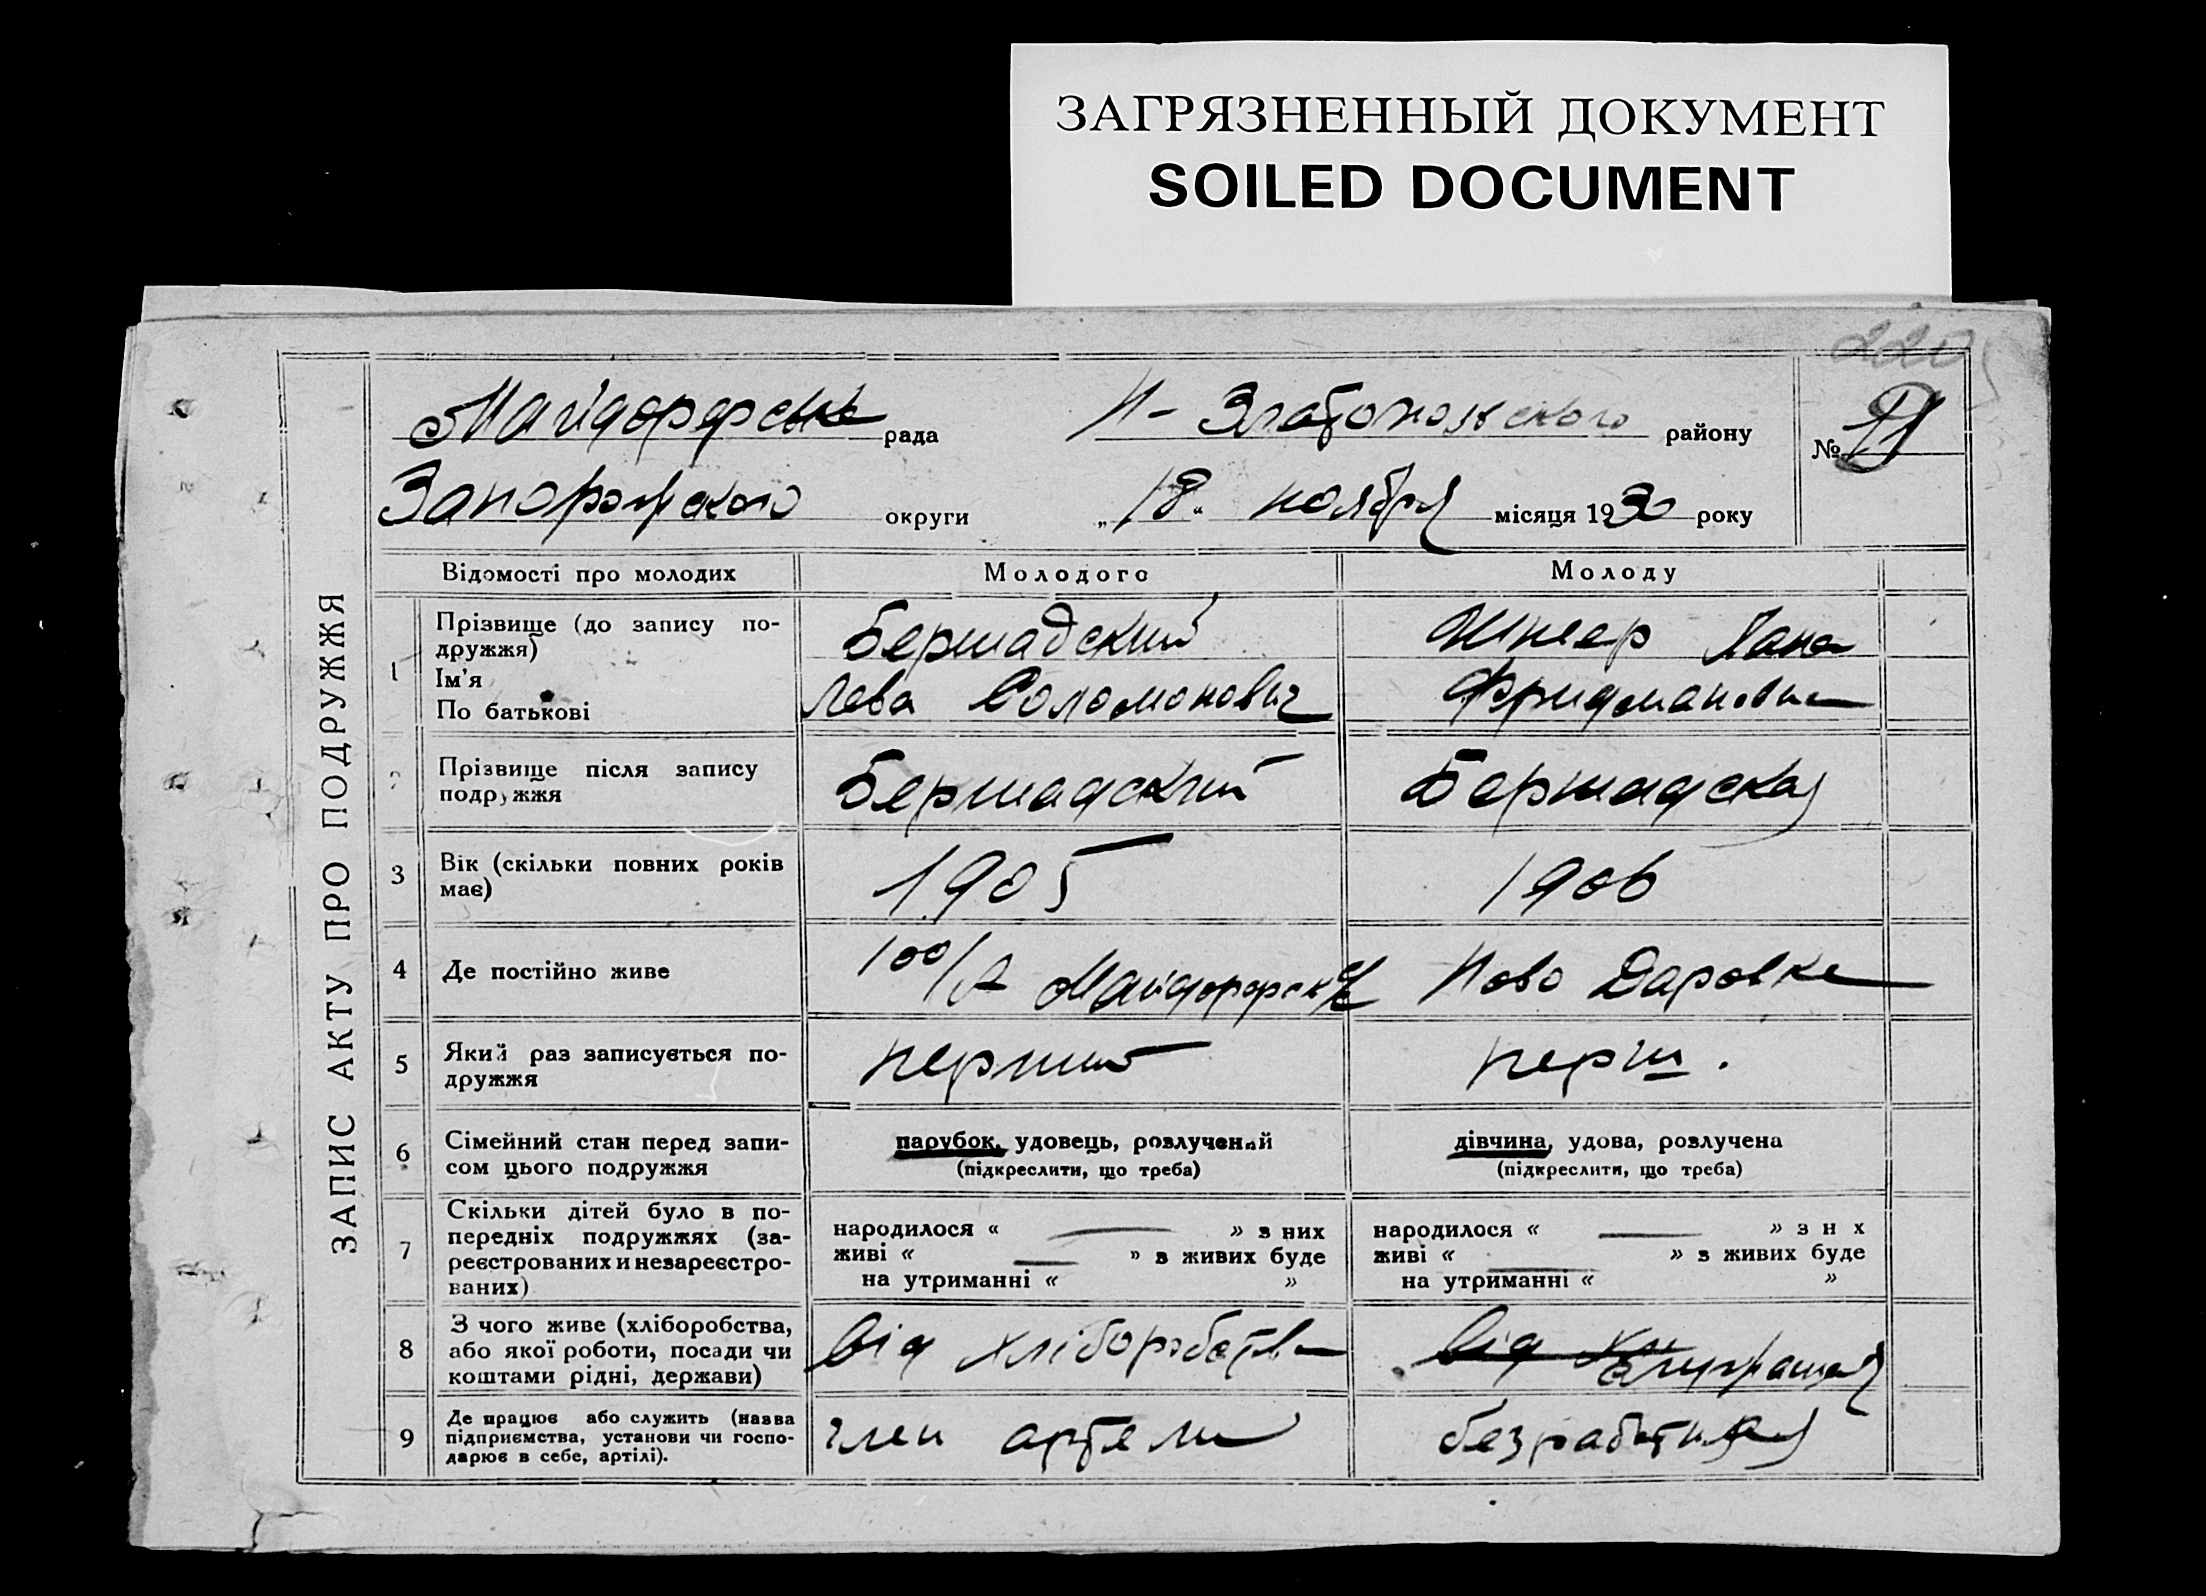 ЗАГРЯЗНЕННЫЙ ДОКУМЕНТ
SOILED DOCUMENT
220
Майдорфська рада Н-Златопольского району № 21
Запорожского округи „18“ ноября місяця 1930 року
ЗАПИС АКТУ ПРО ПОДРУЖЖЯ
Відомості про молодих Молодого Молоду
1 Прізвище (до запису по-
дружжя)
Ім'я
По батькові
Бершадский
Лева Соломонович
Шнеер
2 Прізвище після запису
подружжя
Бершадский
Бершадская
3 Вік (скільки повних років
має)
1905
1906
4 Де постійно живе
Ново Даровке
5 Який раз записується по-
дружжя
перший
перш.
6 Сімейний стан перед запи-
сом цього подружжя
парубок, удовець, розлучений
(підкреслити, що треба)
дівчина, удова, розлучена
(підкреслити, що треба)
7 Скільки дітей було в по-
передніх подружжях (за-
реєстрованих и незареєстро-
ваних)
народилося « — » з них
живі « — » з живих буде
на утриманні « »
народилося « — » з н х
живі « — » з живих буде
на утриманні « »
8 З чого живе (хліборобства,
або якої роботи, посади чи
коштами рідні, держави)
від хліборобства
від
9 Де працює або служить (назва
підприємства, установи чи госпо-
дарює в себе, артілі).
член артели
безработная